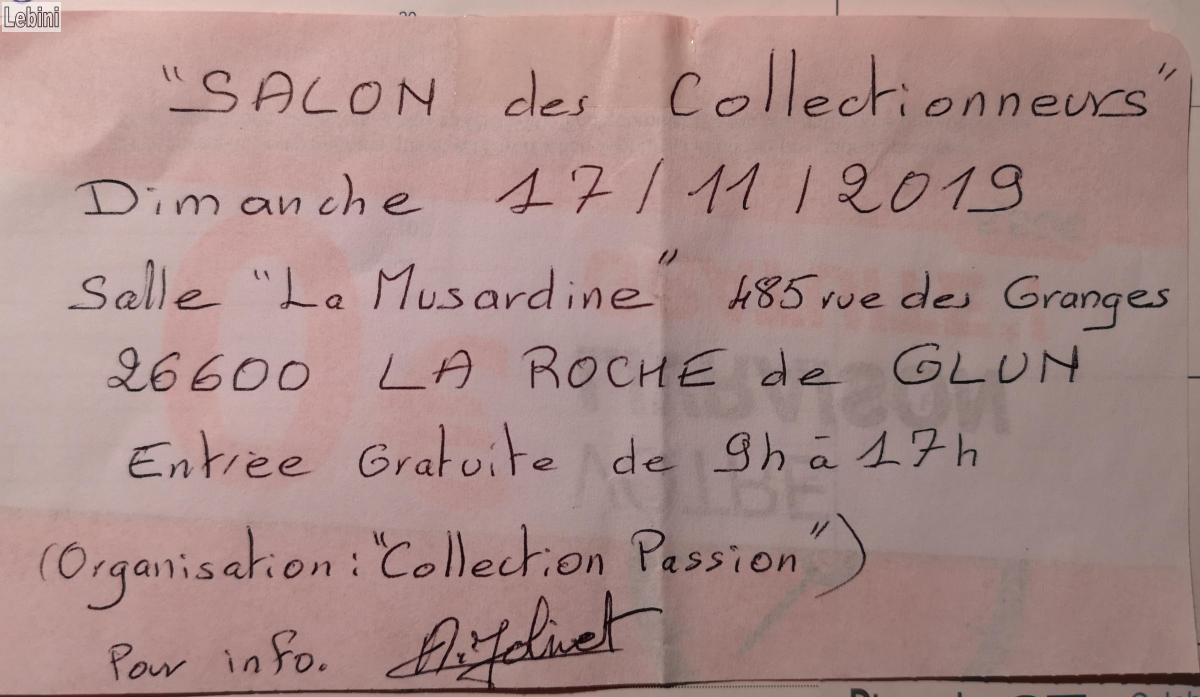 Lebini
"SALON des Collectionneurs"
Dimanche 17/11/2019
Salle "La Musardine" 485 rue des Granges
26600 LA ROCHE de GLUN
Entrée Gratuite de 9h à 17h
(Organisation : "Collection Passion")
Pour info. A. Jolivet